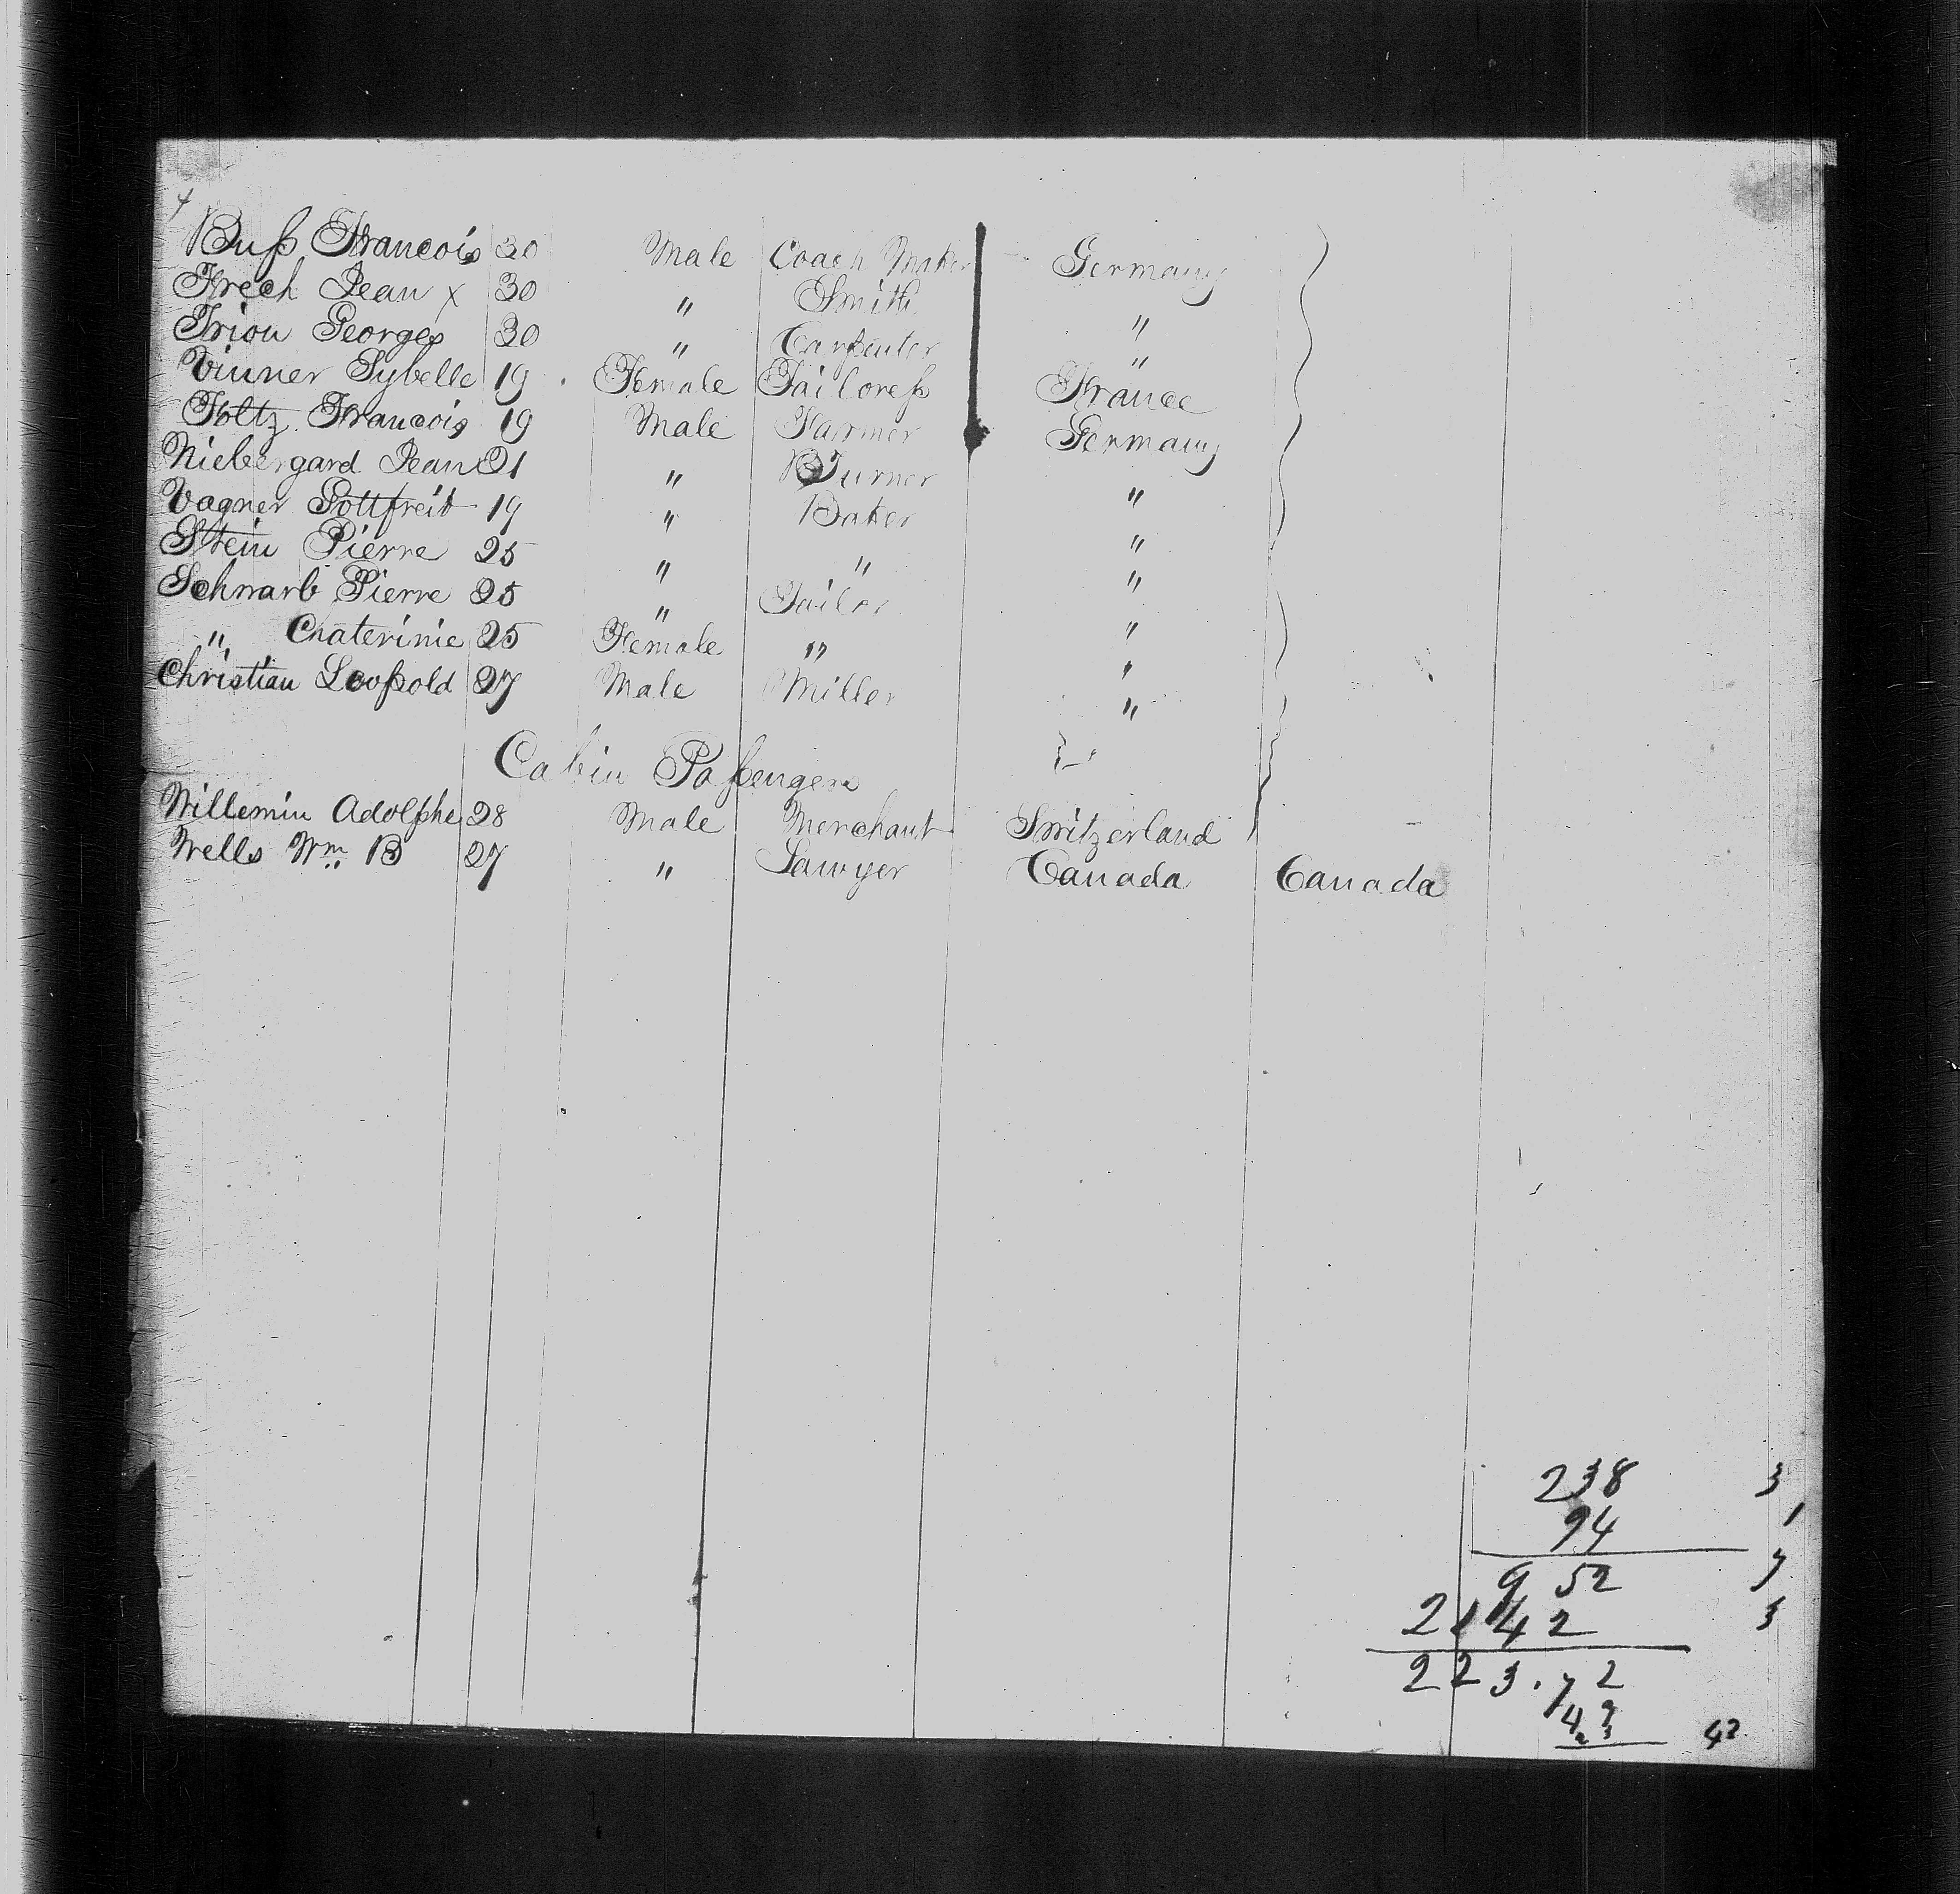 4
Buß Francois 30 Male Coach Maker Germany
Frech Jean x 30 " Smith "
Triou Georges 30 " Carpenter "
Vinner Sybelle 19 Female Tailoreß France
Foltz Francois 19 Male Farmer Germany
Niebergard Jean 21 " Turner "
Vagner Gottfreit 19 " Baker "
Stein Pierre 25 " " "
Schwarb Pierre 25 " Tailor "
" Chaterinie 25 Female " "
Christian Leopold 27 Male Miller "
Cabin Paßengers
Willemin Adolphe 28 Male Merchant Switzerland
Wells Wm B 27 " Lawyer Canada Canada
238 3
94 1
9 52 7
2142 3
223.72
42